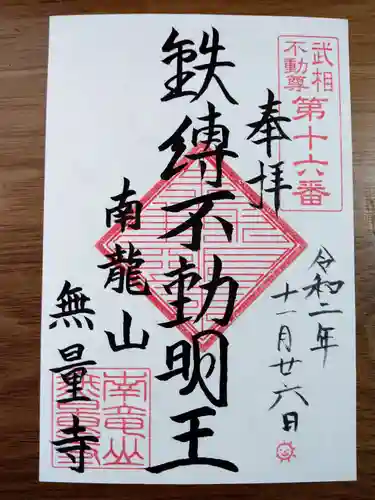 武相
不動尊
第十六番
奉拝
令和二年
十一月廿六日
鉄縛不動明王
南龍山
無量寺